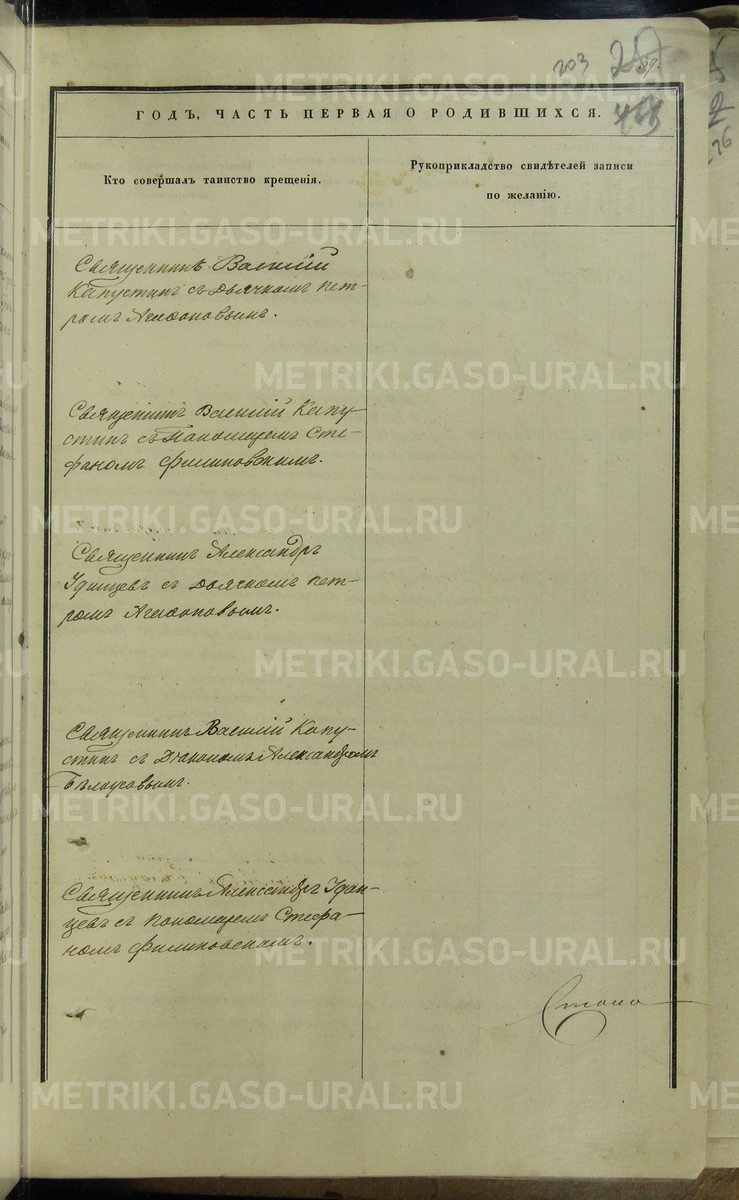 203
ГОДЪ, ЧАСТЬ ПЕРВАЯ О РОДИВШИХСЯ.
Кто совершалъ таинство крещенія.
Рукоприкладство свидѣтелей записи
по желанію.
Священникъ Василій
Капустинъ съ Дьячкомъ Пет-
ромъ Агафоновымъ.
Священникъ Василій Капу-
стинъ съ Пономаремъ Сте-
фаномъ Филиповскимъ.
Священникъ Александръ
Удинцевъ съ Дьячкомъ Пет-
ромъ Агафоновымъ.
Священникъ Василій Капу-
стинъ съ Діакономъ Александромъ
Бѣлоусовымъ.
Священникъ Александръ Удин-
цевъ съ Пономаремъ Стефа-
номъ Филиповскимъ.
METRIKI.GASO-URAL.RU